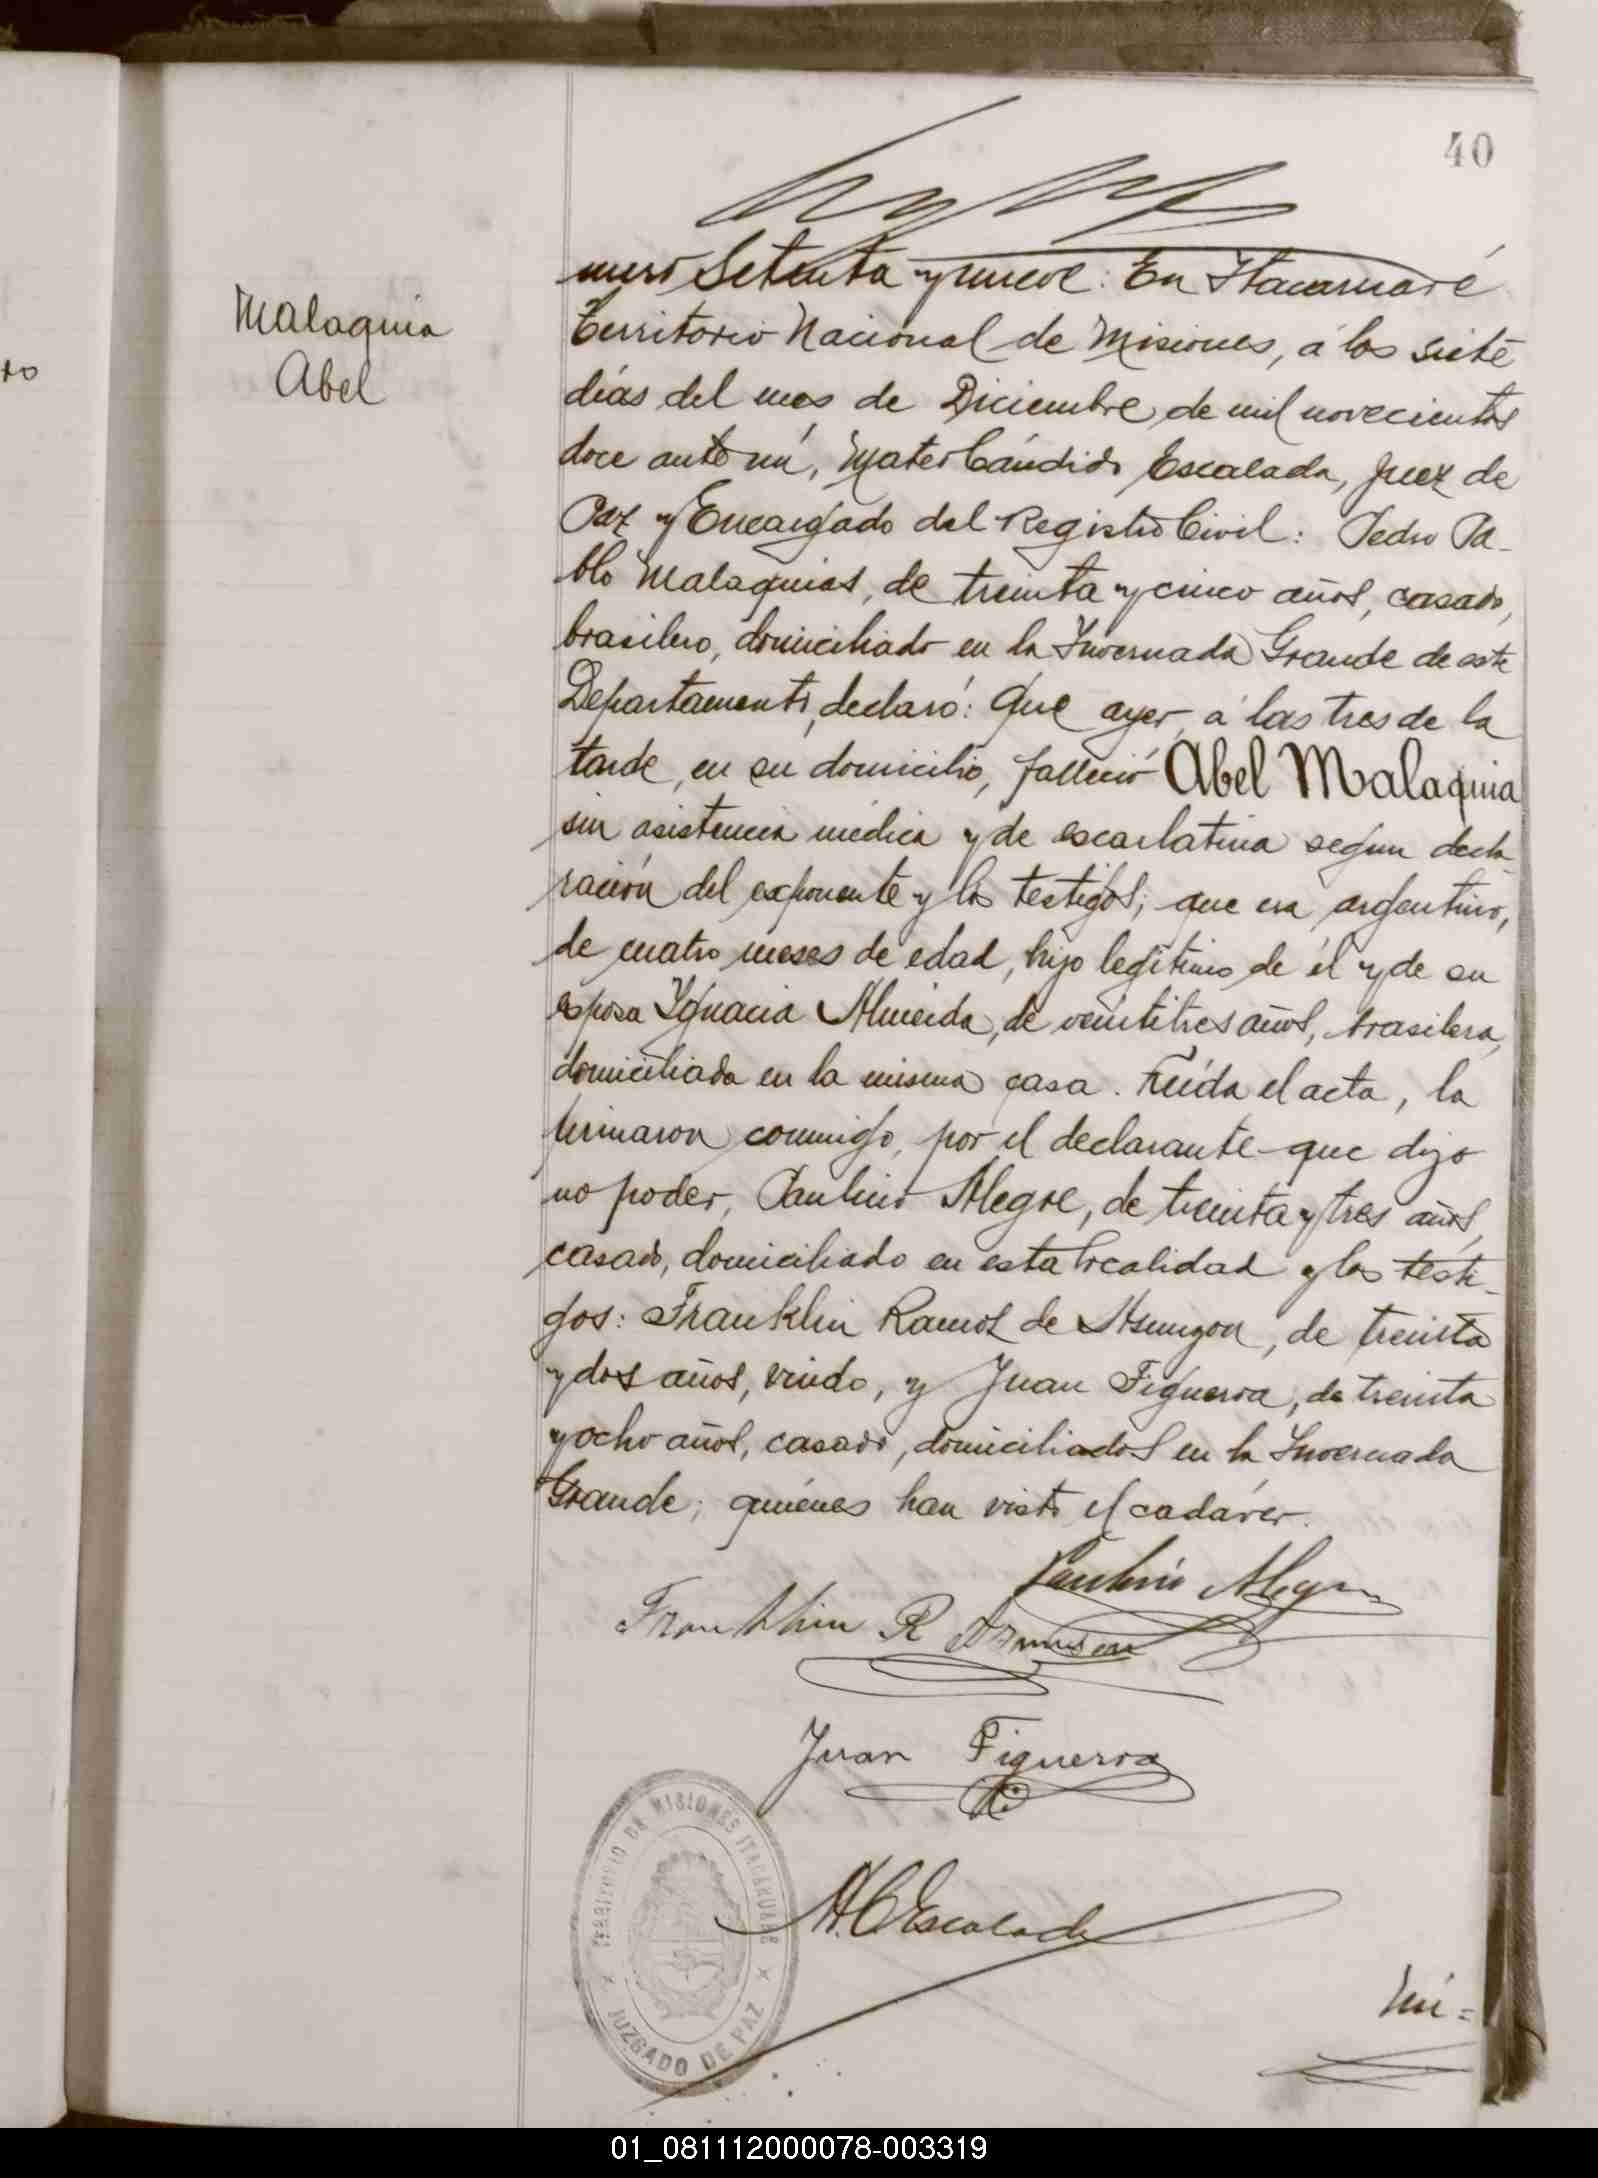 40
Malaquia
Abel
to
mero Setenta y nueve: En Itacaruaré
Territorio Nacional de Misiones, á los siete
días del mes de Diciembre de mil novecientos
doce ante mí, Mateo Cándido Escalada, Juez de
Paz y Encargado del Registro Civil: Pedro Pa-
blo Malaquias, de treinta y cinco años, casado,
brasilero, domiciliado en la Invernada Grande de este
Departamento, declaró: Que ayer, á las tres de la
tarde, en su domicilio, falleció Abel Malaquia
sin asistencia médica y de escarlatina segun decla-
ración del exponente y los testigos; que era argentino,
de cuatro meses de edad, hijo legítimo de él y de su
esposa Ygnacia Almeida, de veintitres años, brasilera,
domiciliada en la misma casa. Leída el acta, la
firmaron conmigo, por el declarante que dijo
no poder, Paulino Alegre, de treinta y tres años,
casado, domiciliado en esta localidad y los testi-
gos: Franklin Ramos de, de treinta
y dos años, viudo, y Juan Figueroa, de treinta
y ocho años, casado, domiciliados en la Invernada
Grande; quiénes han visto el cadáver.
Paulino Alegre
Franklin R
Juan Figueroa
M. C Escalada
TERRITORIO DE MISIONES ITACARUARE
JUZGADO DE PAZ
Nú=
01_081112000078-003319